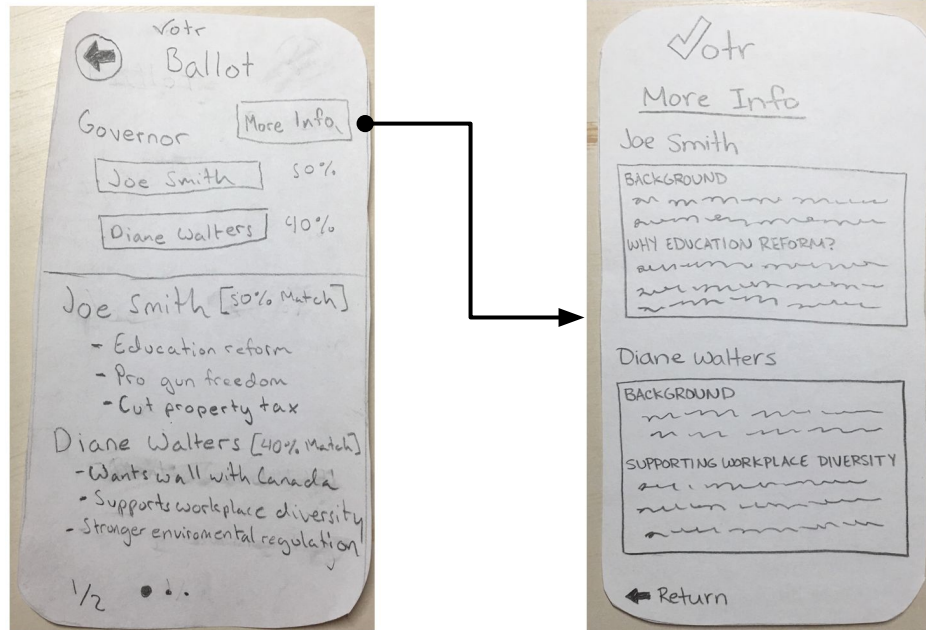 Votr
Ballot
Governor
More Info
Joe Smith 50%
Diane Walters 40%
Joe Smith [50% Match]
- Education reform
- Pro gun freedom
- Cut property tax
Diane Walters [40% Match]
- Wants wall with Canada
- Supports workplace diversity
- Stronger enviromental regulation
1/2
Votr
More Info
Joe Smith
BACKGROUND
WHY EDUCATION REFORM?
Diane Walters
BACKGROUND
SUPPORTING WORKPLACE DIVERSITY
Return